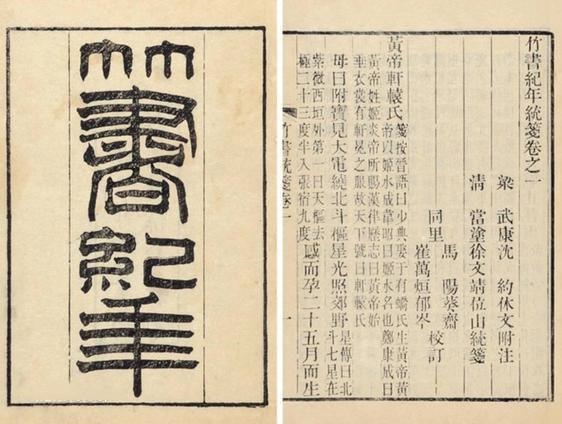 竹書紀年
竹書紀年統箋卷之一
梁 武康沈 約休文附注
清 當塗徐文靖位山統箋
馬 陽葵齋
同里 校訂
崔萬烜郁岑
黃帝軒轅氏
箋按晉語曰少典娶于有蟜氏生黃帝黃
帝以姬水成韋昭曰姬水名也鄭康成曰
黃帝姓姬炎帝所賜漢律歷志曰黃帝始
垂衣裳有軒冕之服故天下號曰軒轅氏
母曰附寶見大電繞北斗樞星光照郊野
星傳曰北
斗七星在
紫微西垣外第一曰天樞去
極二十三度半入張宿九度
感而孕二十五月而生
竹書統箋卷一
一